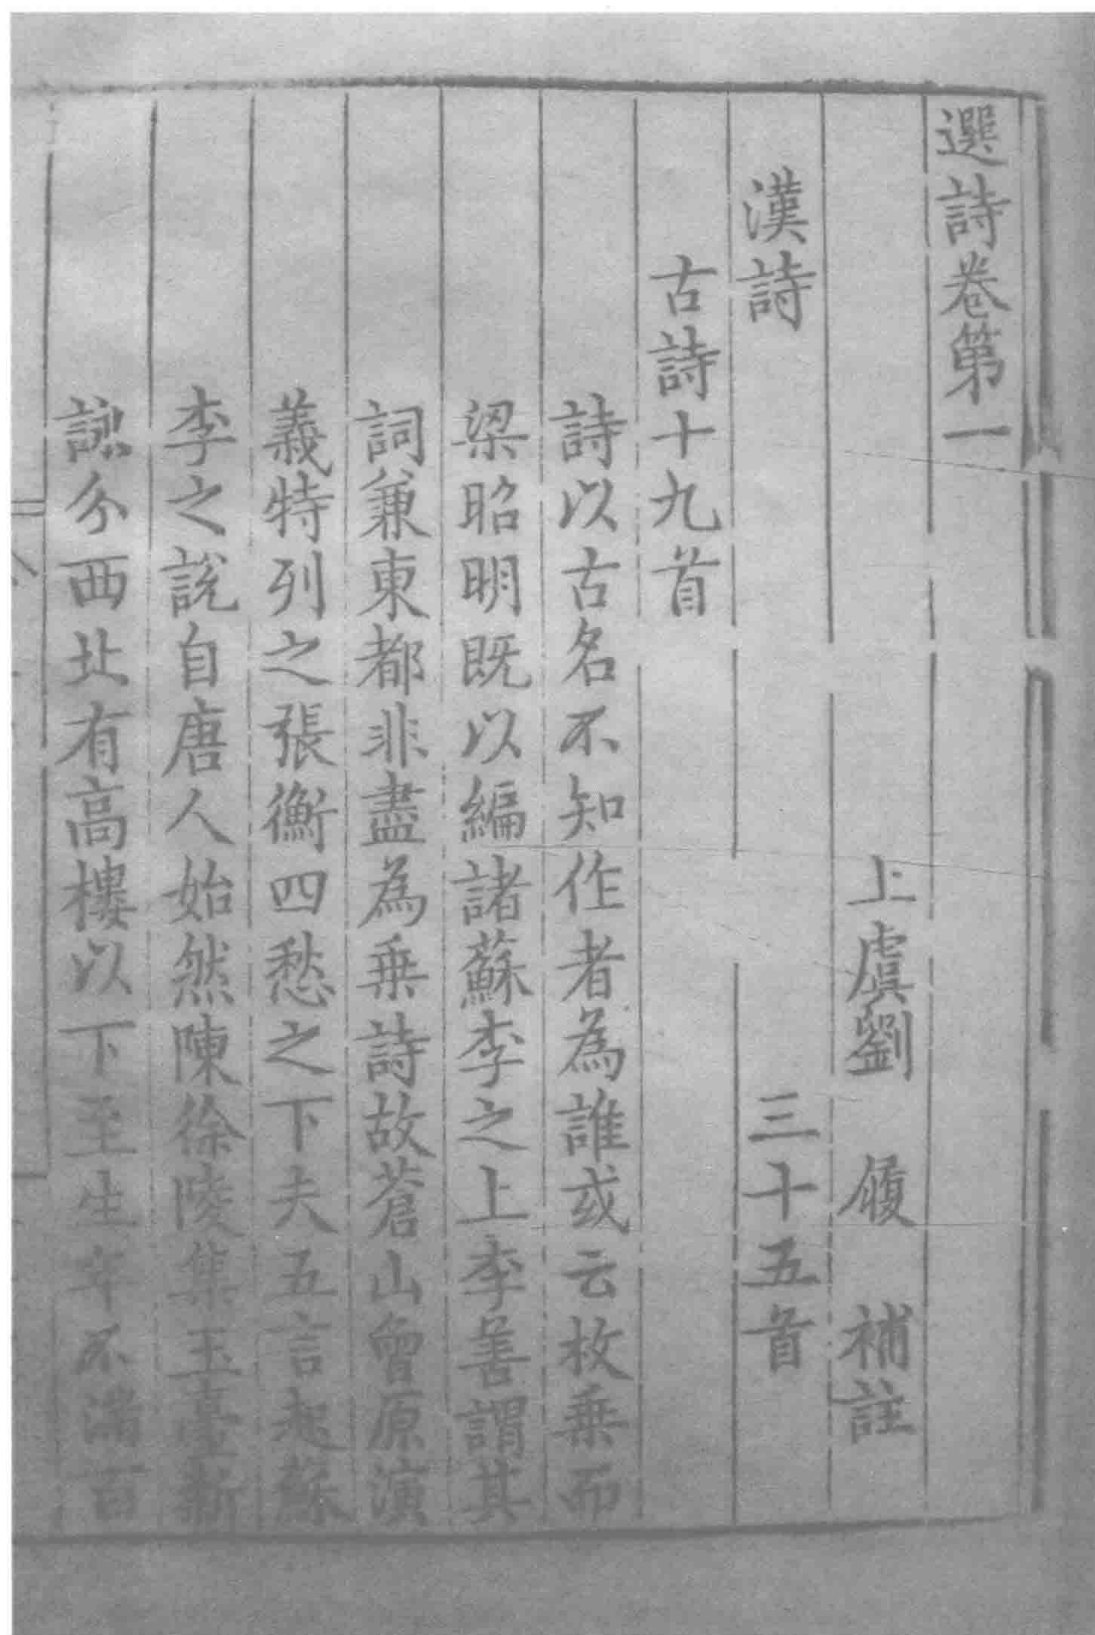 選詩卷第一
上虞劉 履 補註
漢詩 三十五首
古詩十九首
詩以古名不知作者為誰或云枚乗而
梁昭明既以編諸蘇李之上李善謂其
詞兼東都非盡為乗詩故蒼山曾原演
義特列之張衡四愁之下夫五言起蘇
李之説自唐人始然陳徐陵集玉臺新
詠分西北有高樓以下至生年不滿百